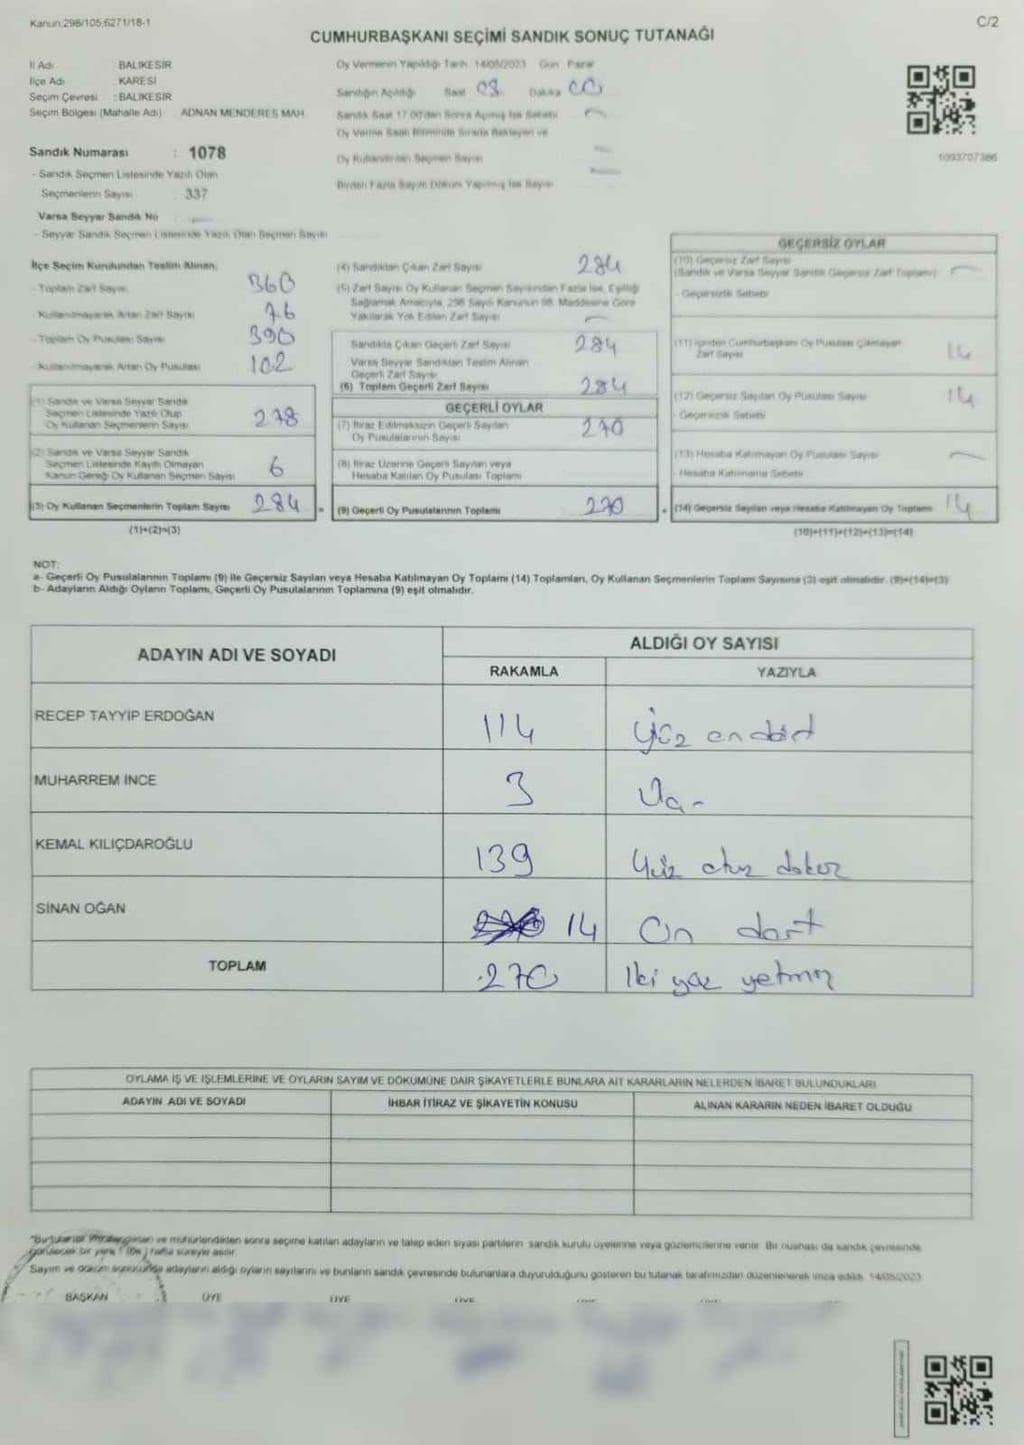 Kanun:298/105;6271/18-1
C/2
CUMHURBAŞKANI SEÇİMİ SANDIK SONUÇ TUTANAĞI
İl Adı BALIKESİR
İlçe Adı : KARESİ
Seçim Çevresi : BALIKESİR
Seçim Bölgesi (Mahalle Adı) : ADNAN MENDERES MAH.
Sandık Numarası : 1078
- Sandık Seçmen Listesinde Yazılı Olan
Seçmenlerin Sayısı : 337
Varsa Seyyar Sandık No
- Seyyar Sandık Seçmen Listesinde Yazılı Olan Seçmen Sayısı
Oy Vermenin Yapıldığı Tarih: 14/05/2023 Gün: Pazar
Sandığın Açıldığı Saat 08 Dakika 00
Sandık Saat 17.00'dan Sonra Açılmış İse Sebebi
Oy Verme Saati Bitiminde Sırada Bekleyen ve
Oy Kullandırılan Seçmen Sayısı
Birden Fazla Sayım Döküm Yapılmış İse Sayısı
1093707386
İlçe Seçim Kurulundan Teslim Alınan;
- Toplam Zarf Sayısı 360
Kullanılmayarak Artan Zarf Sayısı 76
- Toplam Oy Pusulası Sayısı 390
Kullanılmayarak Artan Oy Pusulası 102
(1) Sandık ve Varsa Seyyar Sandık
Seçmen Listesinde Yazılı Olup
Oy Kullanan Seçmenlerin Sayısı 278
(2) Sandık ve Varsa Seyyar Sandık
Seçmen Listesinde Kayıtlı Olmayan
Kanun Gereği Oy Kullanan Seçmen Sayısı 6
(3) Oy Kullanan Seçmenlerin Toplam Sayısı 284 =
(1)+(2)=(3)
(4) Sandıktan Çıkan Zarf Sayısı 284
(5) Zarf Sayısı Oy Kullanan Seçmen Sayısından Fazla İse, Eşitliği
Sağlamak Amacıyla, 298 Sayılı Kanunun 98. Maddesine Göre
Yakılarak Yok Edilen Zarf Sayısı
Sandıkta Çıkan Geçerli Zarf Sayısı 284
Varsa Seyyar Sandıktan Teslim Alınan
Geçerli Zarf Sayısı
(6) Toplam Geçerli Zarf Sayısı 284
GEÇERLİ OYLAR
(7) İtiraz Edilmeksizin Geçerli Sayılan
Oy Pusulalarının Sayısı 270
(8) İtiraz Üzerine Geçerli Sayılan veya
Hesaba Katılan Oy Pusulası Toplamı
(9) Geçerli Oy Pusulalarının Toplamı 270 +
GEÇERSİZ OYLAR
(10) Geçersiz Zarf Sayısı
(Sandık ve Varsa Seyyar Sandık Geçersiz Zarf Toplamı)
- Geçersizlik Sebebi
(11) İçinden Cumhurbaşkanı Oy Pusulası Çıkmayan
Zarf Sayısı 14
(12) Geçersiz Sayılan Oy Pusulası Sayısı 14
- Geçersizlik Sebebi
(13) Hesaba Katılmayan Oy Pusulası Sayısı
- Hesaba Katılmama Sebebi
(14) Geçersiz Sayılan veya Hesaba Katılmayan Oy Toplamı 14
(10)+(11)+(12)+(13)=(14)
NOT:
a- Geçerli Oy Pusulalarının Toplamı (9) ile Geçersiz Sayılan veya Hesaba Katılmayan Oy Toplamı (14) Toplamları, Oy Kullanan Seçmenlerin Toplam Sayısına (3) eşit olmalıdır. (9)+(14)=(3)
b- Adayların Aldığı Oyların Toplamı, Geçerli Oy Pusulalarının Toplamına (9) eşit olmalıdır.
ADAYIN ADI VE SOYADI
ALDIĞI OY SAYISI
RAKAMLA YAZIYLA
RECEP TAYYİP ERDOĞAN 114 yüz on dört
MUHARREM İNCE 3 Üç
KEMAL KILIÇDAROĞLU 139 Yüz otuz dokuz
SİNAN OĞAN 14 On dört
TOPLAM 270 İki yüz yetmiş
OYLAMA İŞ VE İŞLEMLERİNE VE OYLARIN SAYIM VE DÖKÜMÜNE DAİR ŞİKAYETLERLE BUNLARA AİT KARARLARIN NELERDEN İBARET BULUNDUKLARI
ADAYIN ADI VE SOYADI İHBAR İTİRAZ VE ŞİKAYETİN KONUSU ALINAN KARARIN NEDEN İBARET OLDUĞU
"Bu tutanak imzalandıktan ve mühürlendikten sonra seçime katılan adayların ve talep eden siyasi partilerin sandık kurulu üyelerine veya gözlemcilerine verilir. Bir nüshası da sandık çevresinde
görülecek bir yere 1 (Bir) hafta süreyle asılır.
Sayım ve döküm sonucunda adayların aldığı oyların sayılarını ve bunların sandık çevresinde bulunanlara duyurulduğunu gösteren bu tutanak tarafımızdan düzenlenerek imza edildi. 14/05/2023
BAŞKAN ÜYE ÜYE ÜYE